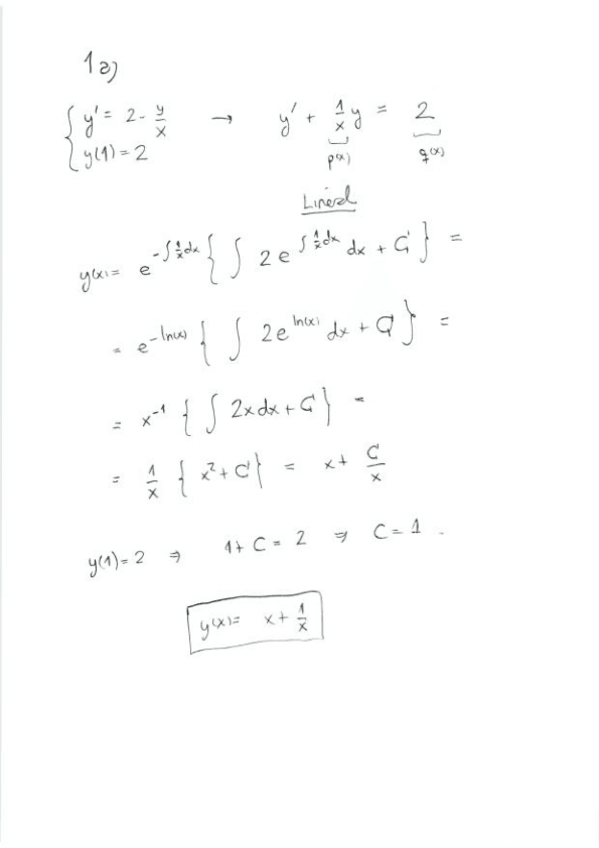 1a)
{ y' = 2 - y/x → y' + 1/x y = 2
{ y(1) = 2 p(x) q(x)
Lineal
y(x) = e^{-∫ 1/x dx} { ∫ 2 e^{∫ 1/x dx} dx + C } =
= e^{-ln(x)} { ∫ 2e^{ln(x)} dx + C } =
= x^{-1} { ∫ 2x dx + C } =
= 1/x { x² + C } = x + C/x
y(1) = 2 ⇒ 1 + C = 2 ⇒ C = 1 .
y(x) = x + 1/x